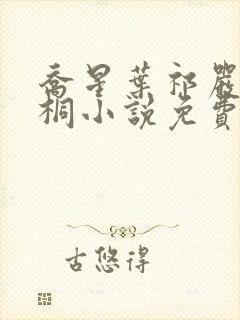 喬星葉祁嚴
桐小說免費
古悠得